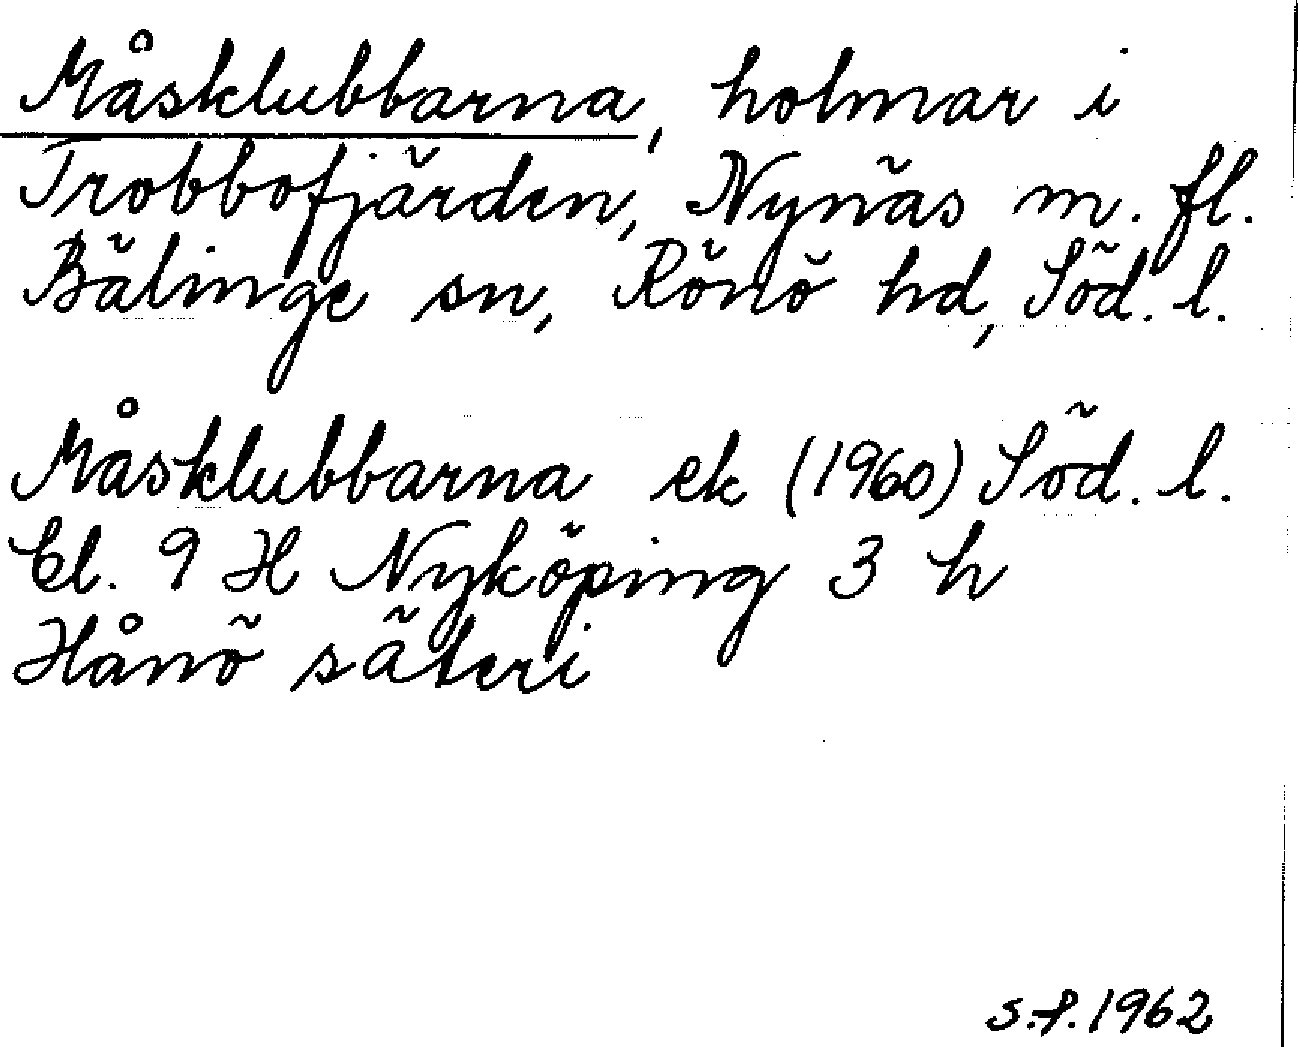 Måsklubbarna, holmar i
Trobbofjärden, Nynäs m. fl.
Bälinge sn, Rönö hd, Söd. l.
Måsklubbarna ek (1960) Söd. l.
bl. 9 H Nyköping 3 h
Hånö säteri
s.f. 1962